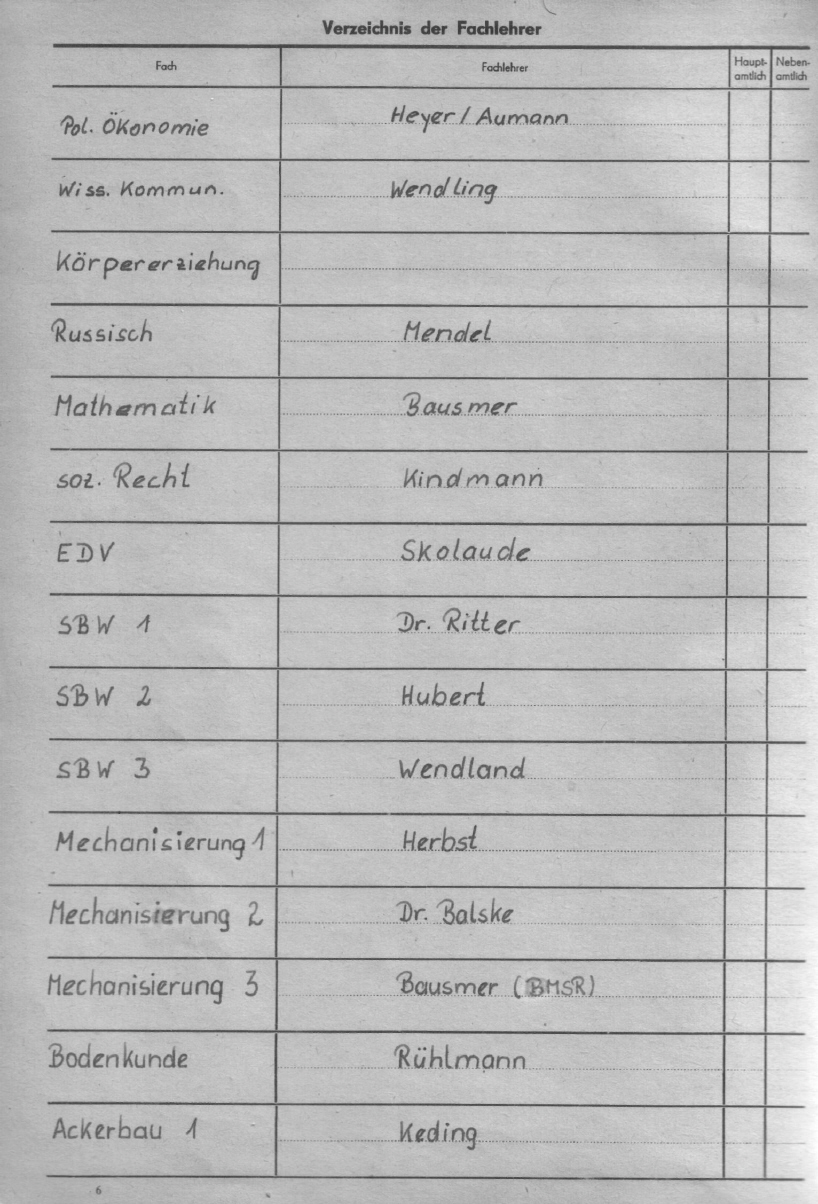 Verzeichnis der Fachlehrer
Fach Fachlehrer Haupt-amtlich Neben-amtlich
Pol. Ökonomie Heyer / Aumann
Wiss. Kommun. Wendling
Körpererziehung
Russisch Mendel
Mathematik Bausmer
soz. Recht Kindmann
EDV Skolaude
SBW 1 Dr. Ritter
SBW 2 Hubert
SBW 3 Wendland
Mechanisierung 1 Herbst
Mechanisierung 2 Dr. Balske
Mechanisierung 3 Bausmer (BMSR)
Bodenkunde Rühlmann
Ackerbau 1 Keding
6